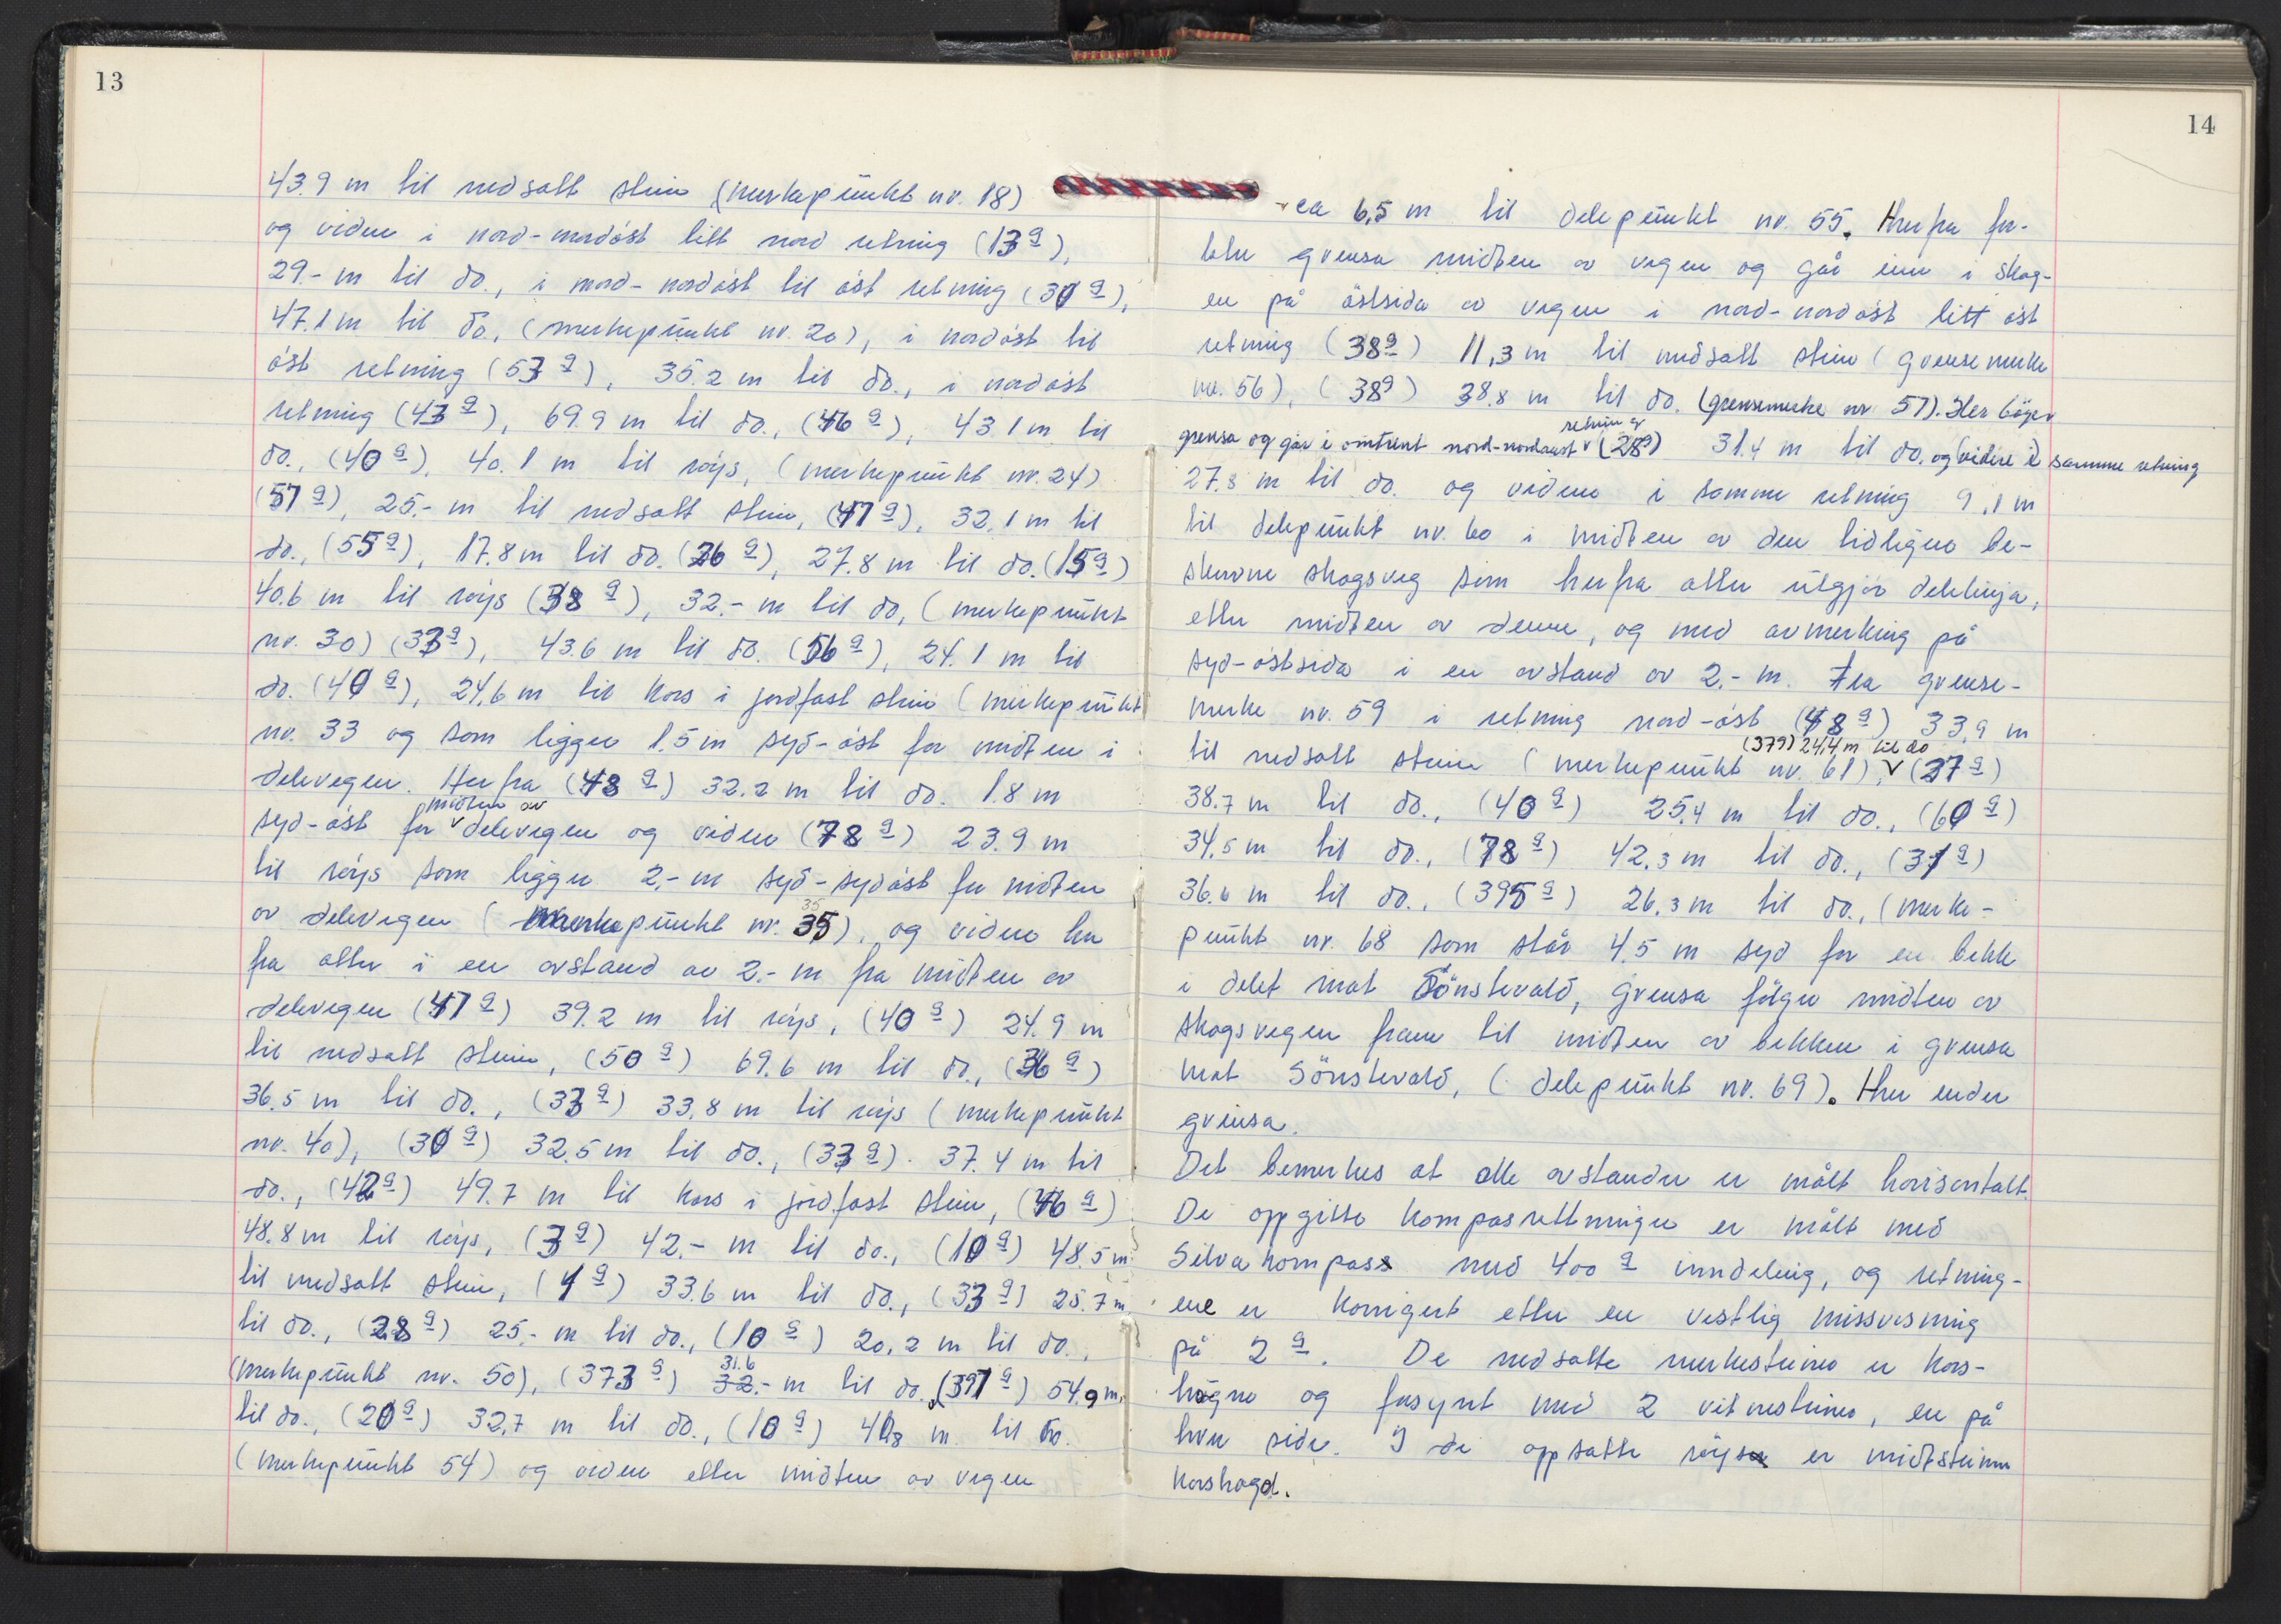 13
43.9 m til nedsatt stein (merkepunkt nr. 18)
og videre i nord-nordöst litt nord retning (13 g),
29.- m til do., i nord-nordöst til öst retning (30 g),
47.1 m til do., (merkepunkt nr. 20), i nordöst til
öst retning (53 g), 35.2 m til do., i nordöst
retning (43 g), 69.9 m til do., (46 g), 43.1 m til
do., (40 g), 40.1 m til röys, (merkepunkt nr. 24)
(57 g), 25.- m til nedsatt stein, (47 g), 32.1 m til
do., (55 g), 17.8 m til do. (26 g), 27.8 m til do. (15 g)
40.6 m til röys (38 g), 32.- m til do, (merkepunkt
nr. 30) (33 g), 43.6 m til do. (56 g), 24.1 m til
do. (40 g), 24.6 m til kors i jordfast stein (merkepunkt
nr. 33 og som ligger 1.5 m syd-öst for midten i
delevegen. Herfra (48 g) 32.2 m til do. 1.8 m
midten av
syd-öst for v delevegen og videre (78 g) 23.9 m
til röys som ligger 2,- m syd-sydöst for midten
35
av delevegen (merkepunkt nr. 35), og videre her
fra etter i en avstand av 2.- m fra midten av
delevegen (47 g) 39.2 m til röys, (40 g) 24.9 m
til nedsatt stein, (50 g) 69.6 m til do., (36 g)
36.5 m til do., (33 g) 33.8 m til röys (merkepunkt
nr. 40), (30 g) 32.5 m til do., (33 g). 37.4 m til
do., (42 g) 49.7 m til kors i jordfast stein, (46 g)
48.8 m til röys, (3 g) 42.- m til do., (10 g) 48.5 m
til nedsatt stein, (4 g) 33.6 m til do., (33 g) 25.7 m
til do., (28 g) 25.- m til do., (10 g) 20.2 m til do.,
31.6
(merkepunkt nr. 50), (373 g) 32.- m til do., (397 g) 54.9 m.
til do., (20 g) 32,7 m til do., (10 g) m til do.
(merkepunkt 54) og videre etter midten av vegen
14
ca 6,5 m til delepunkt nr. 55. Herfra for-
later grensa midten av vegen og går inn i skog-
en på östsida av vegen i nord-nordöst litt öst
retning (38 g) 11,3 m til nedsatt stein (grensemerke
nr. 56), (38 g) 38.8 m til do. (grensemerke nr 57). Her böyer
retning
grensa og går i omtrent nord-nordaust v (28 g) 31.4 m til do. og (videre i) samme retning
27.8 m til do. og videre i samme retning 9,1 m
til delepunkt nr. 60 i midten av den tidligere be-
skrevne skogsveg som herfra atter utgjör delelinja,
etter midten av denne, og med avmerking på
syd-östsida i en avstand av 2.- m. Fra grense-
merke nr. 59 i retning nord-öst (48 g) 33,9 m
(37 g) 24,4 m til do
til nedsatt stein (merkepunkt nr. 61), v (37 g)
38.7 m til do., (40 g) 25.4 m til do., (60 g)
34.5 m til do., (78 g) 42.3 m til do., (31 g)
36.6 m til do., (395 g) 26.3 m til do., (merke-
punkt nr. 68 som står 4.5 m syd for en bekk
i delet mot Sönstevold, grensa fölger midten av
skogsvegen fram til midten av bekken i grensa
mot Sönstevold, (delepunkt nr. 69). Her ender
grensa.
Det bemerkes at alle avstander er målt horisontalt.
De oppgitte kompasretninger er målt med
Silva kompass med 400 g inndeling, og retning-
ene er korrigert etter en vestlig missvisning
på 2 g. De nedsatte merkesteiner er kors-
högne og forsynt med 2 vitnesteiner, en på
hver side. I de oppsatte röyser er midtsteinen
korshogd.